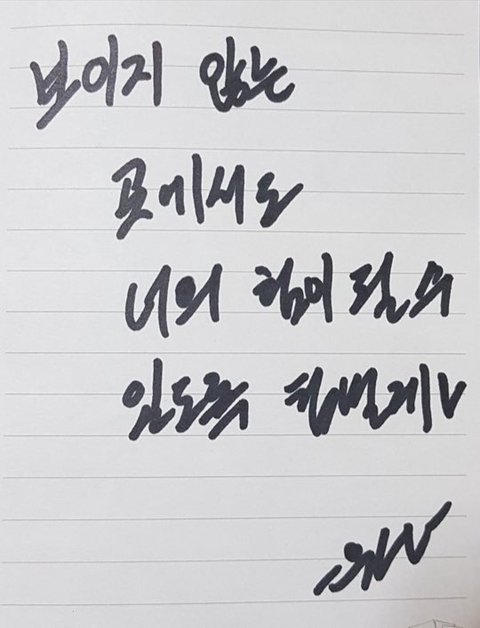 보이지 않는
곳에서도
너의 힘이 될 수
있도록 한번